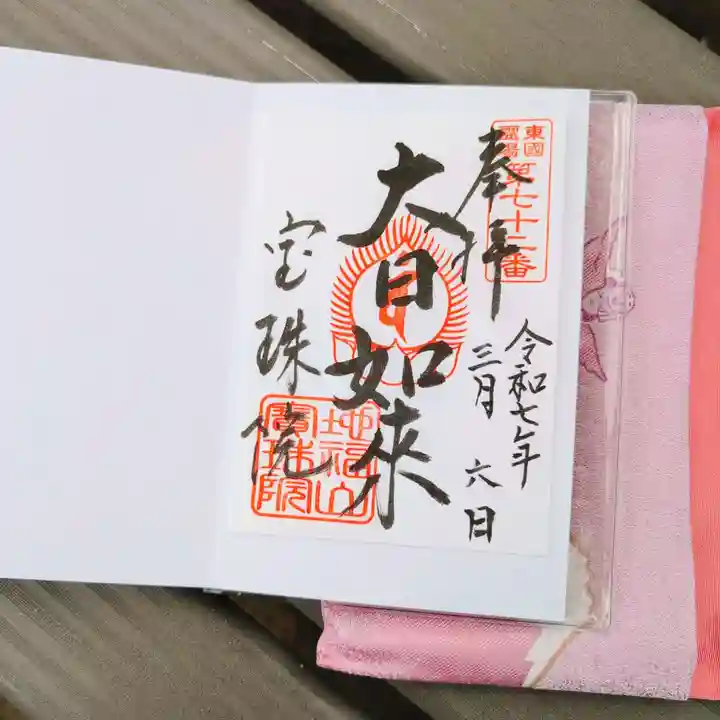 東國
靈場
第七十二番
奉拝
令和七年
三月六日
大日如来
宝珠院
地福山
寶珠院